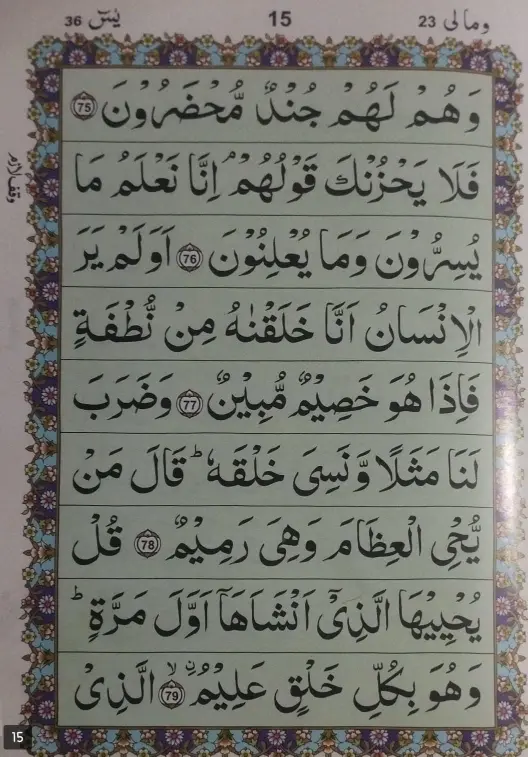 یٰسٓ 36
15
ومالی 23
وَهُمْ لَهُمْ جُنْدٌ مُّحْضَرُوْنَ 75
فَلَا يَحْزُنْكَ قَوْلُهُمْ ۘ اِنَّا نَعْلَمُ مَا
وقف لازم
يُسِرُّوْنَ وَمَا يُعْلِنُوْنَ 76 اَوَلَمْ يَرَ
الْاِنْسَانُ اَنَّا خَلَقْنٰهُ مِنْ نُّطْفَةٍ
فَاِذَا هُوَ خَصِيْمٌ مُّبِيْنٌ 77 وَضَرَبَ
لَنَا مَثَلًا وَّنَسِىَ خَلْقَهٗ ؕ قَالَ مَنْ
يُّحْىِ الْعِظَامَ وَهِىَ رَمِيْمٌ 78 قُلْ
يُحْيِيْهَا الَّذِىْۤ اَنْشَاَهَاۤ اَوَّلَ مَرَّةٍ ؕ
وَهُوَ بِكُلِّ خَلْقٍ عَلِيْمُ ۨ ۙ 79 الَّذِىْ
15